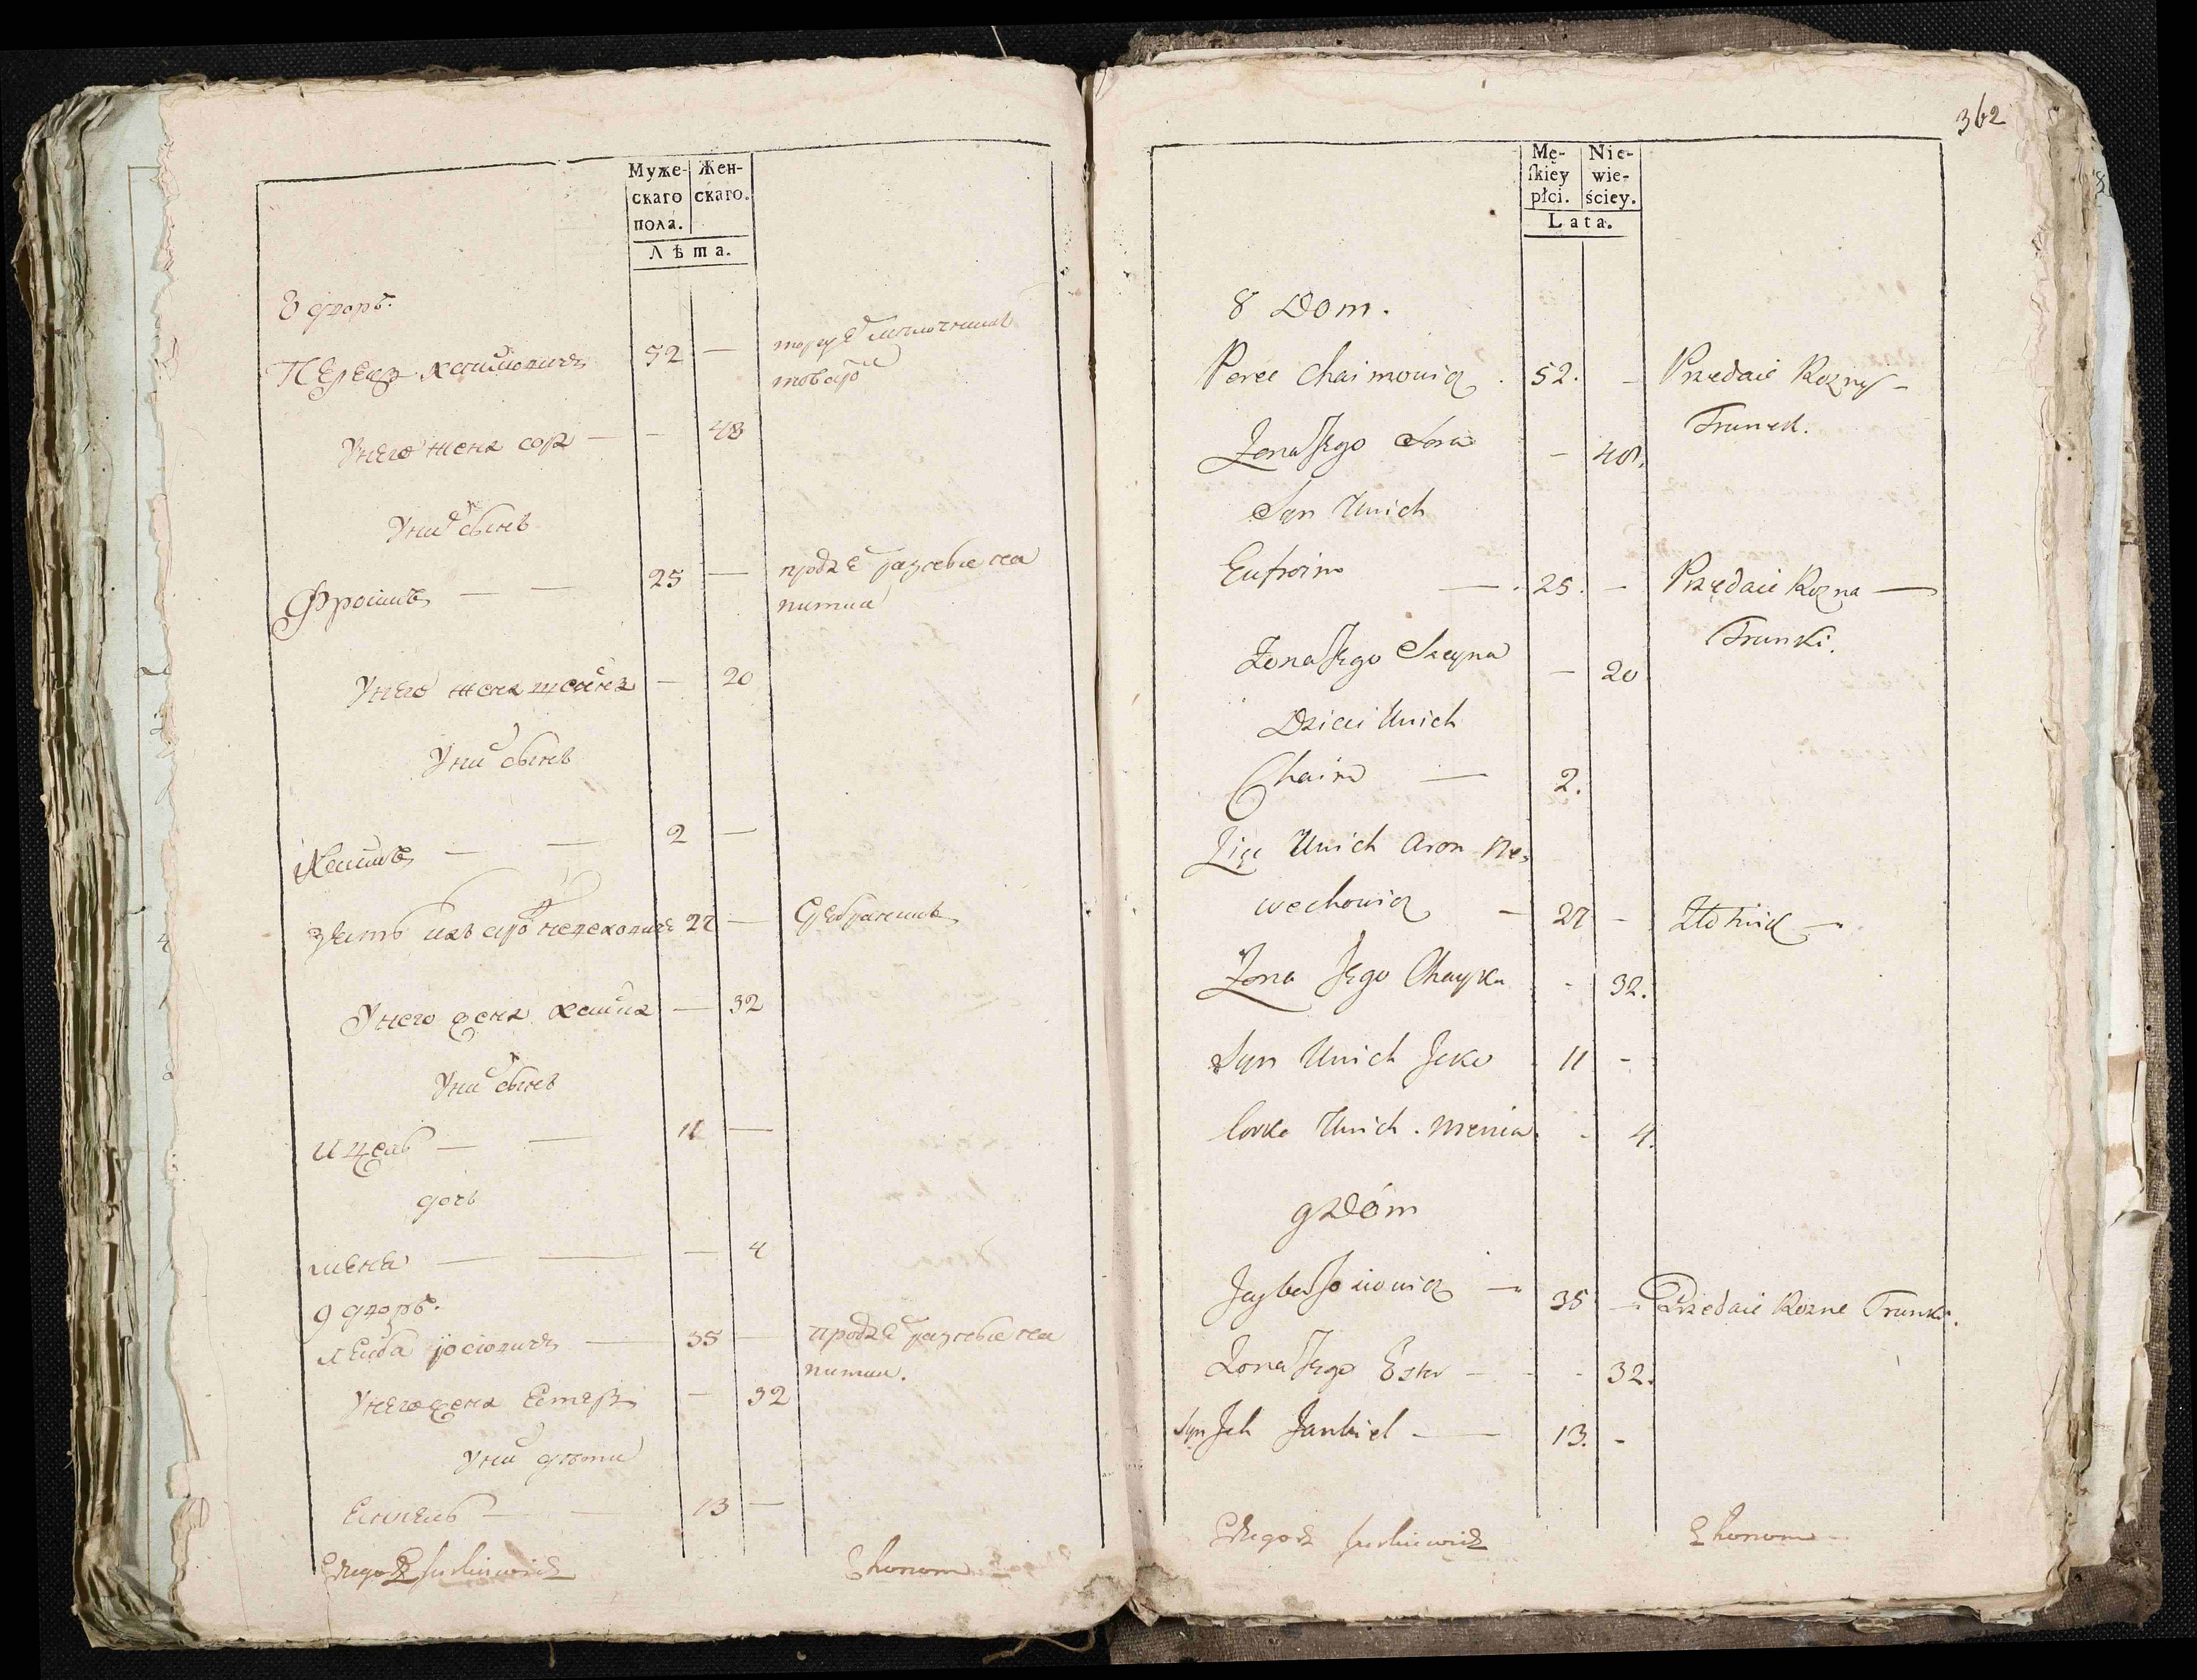 Муже-
скаго
пола.
Жен-
скаго.
Лѣта.
8 дворъ.
Перецъ хаимовичъ 52 — торгуетъ мѣлочнымъ
товаромъ
У него жена сора — — 48
У них сынъ
Фроимъ — — 25 — продаетъ разные на
питки
У него жена шейна — 20
У них сынъ
Хаимъ — — 2 —
зять ихъ арон 27 — Серебряникъ
У него жена хайка — 32
У них сынъ
ицекъ — — 11 —
дочь
меня — — — 4
9 дворъ.
Лейба иосіовичъ — 35 — продаетъ разные на
питки.
У него жена Естеръ — 32
У них дѣти
— — 13 —
Ekonom
362
Mę-
ſkiey
płci.
Nie-
wie-
ściey.
Lata.
8 Dom.
Perec Chaimowicz . 52. — Przedaie Rozny —
Trunek.
Zona Jego Sora — 48.
Syn Unich
Eufroim — . 25. — Przedaie Rozna —
Trunki.
Zona Jego Szeyna — 20
Dzieci Unich
Chaim — 2.
Zięć Unich Aron Ne-
wechowicz — 27 — Złotnik —
Zona Jego Chayka - 32.
Syn Unich Jcko 11 -
Corka Unich . Menia - 4.
9 Dom
Leyba Josiowicz — 35 — Przedaie Rozne Trunki.
Zona Jego Ester — - 32.
Syn Jch Jankiel — 13. -
Ekonom